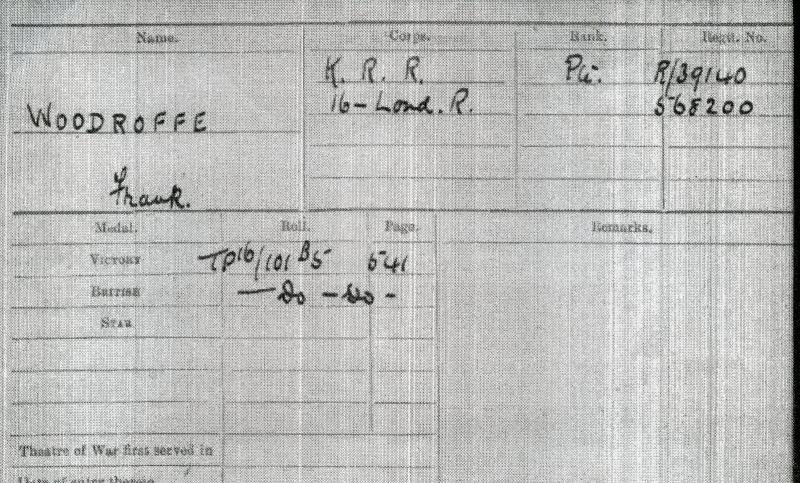 Name. Corps. Rank. Regtl. No.
K. R. R. Pte. R/39140
16-Lond. R. 568200
WOODROFFE
Frank.
Medal. Roll. Page. Remarks.
VICTORY TP16/101 B5 541
BRITISH — Do - Do -
STAR
Theatre of War first served in
Date of entry therein